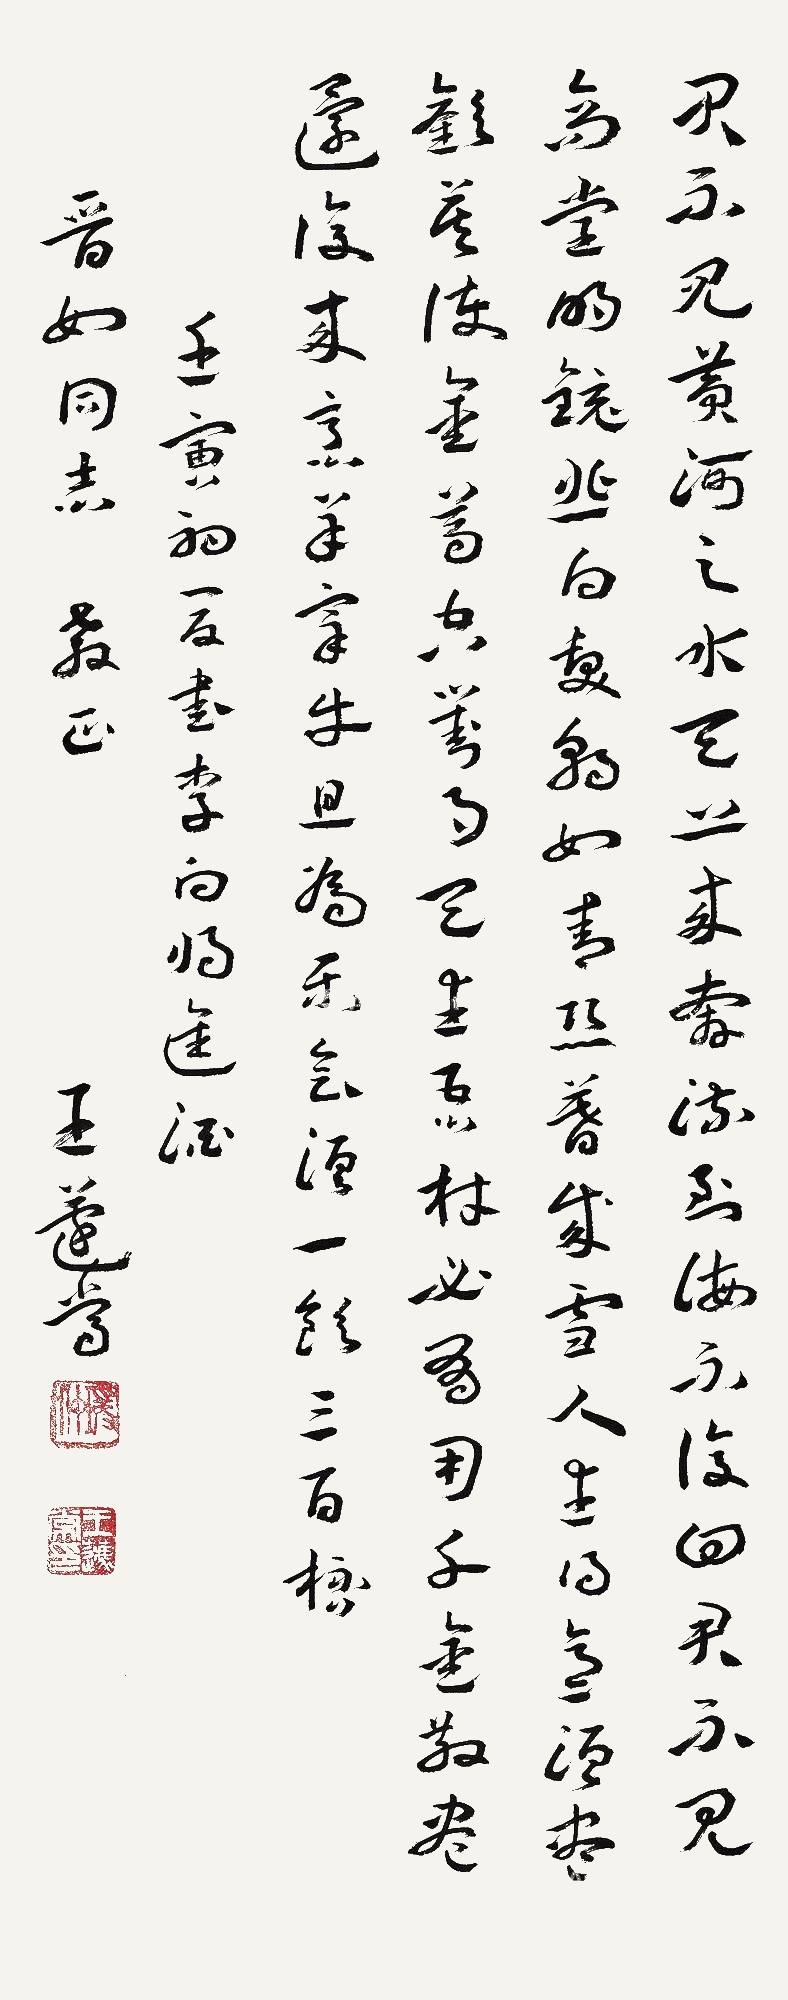 君不見黃河之水天上來奔流到海不復回君不見
高堂明鏡悲白髮朝如青絲暮成雪人生得意須盡
歡莫使金尊空對月天生吾材必有用千金散盡
還復來烹羊宰牛且為樂會須一飲三百桮
壬寅初夏書李白將進酒
晋如同志 教正 王蘧常
王蘧常印